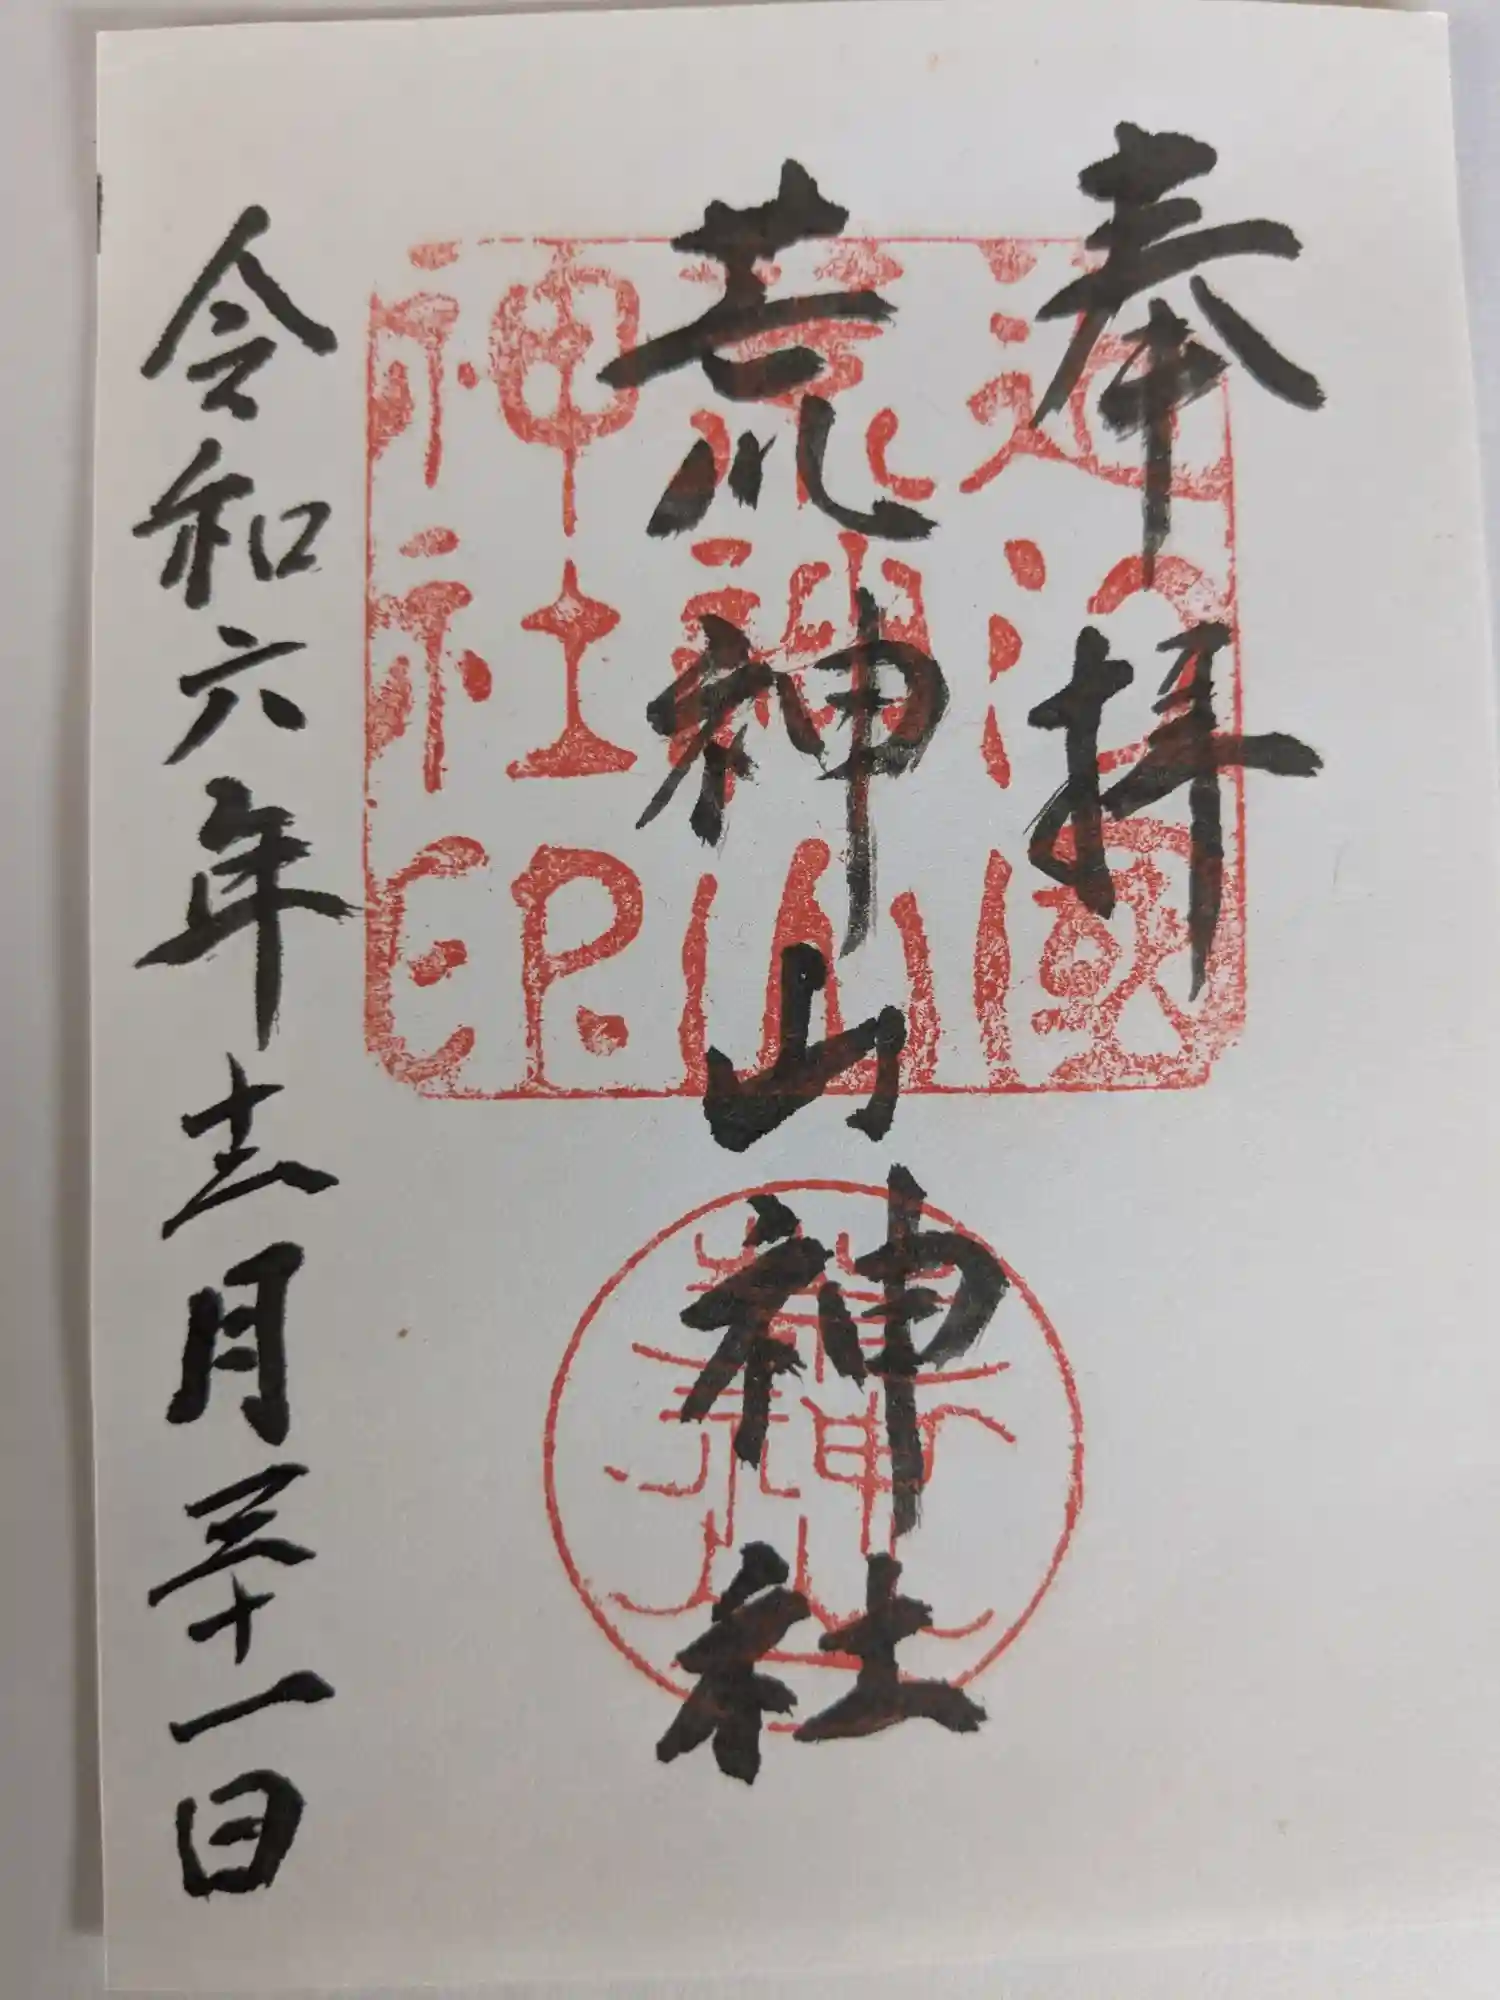 奉拝
荒神山神社
令和六年十二月三十一日
近江國
荒神山
神社印